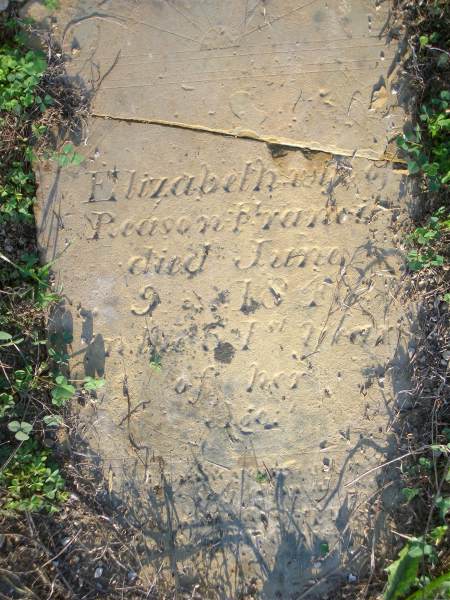 Elizabeth wife of
Reason Francis
died June
9 184
in the 51st year
of her
age